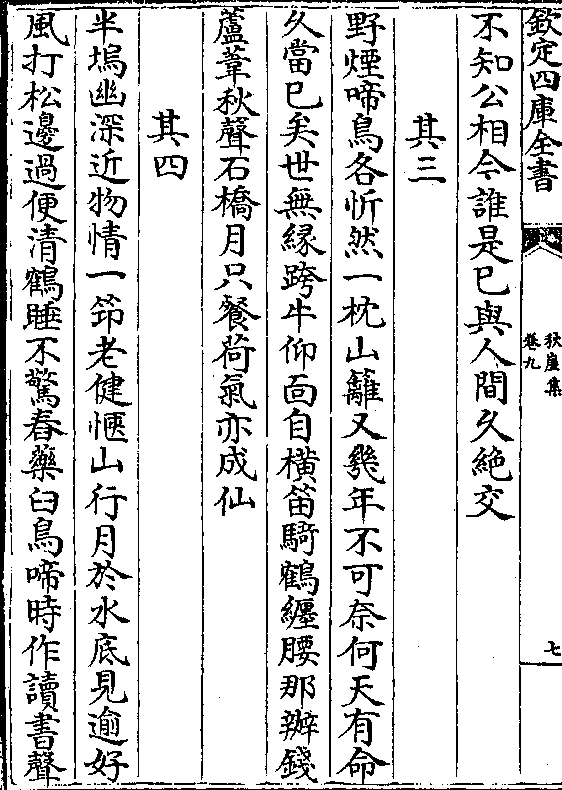 欽定四庫全書
秋崖集
卷九
七
不知公相今誰是已與人間久絶交
其三
野煙啼鳥各忻然一枕山籬又幾年不可奈何天有命
久當已矣世無緣跨牛仰面自橫笛騎鶴纏腰那辦錢
蘆葦秋聲石橋月只餐荷氣亦成仙
其四
半塢幽深近物情一笻老健愜山行月於水底見逾好
風打松邊過便清鶴睡不驚舂藥臼鳥啼時作讀書聲